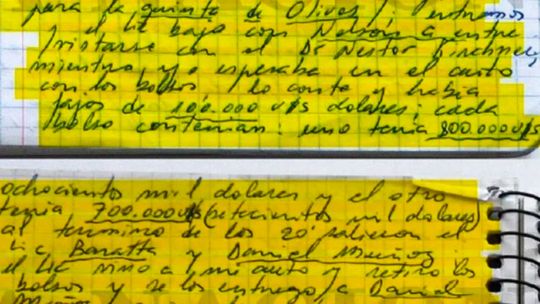 para la quinta de Olivos / Entramos
y el Lic bajo con Nelson a entre
vistarse con el Dr Nestor Kirchner,
mientras yo esperaba en el auto
con los bolsos / lo conte y habia
fajos de 100.000 u$s dolares; cada
bolso contenian: uno tenia 800.000 u$s
ochocientos mil dolares y el otro
tenia 700.000 u$s (setecientos mil dolares)
al termino de los 20' salieron el
Lic Baratta y Daniel Muñoz
el Lic vino a mi auto y retiro los
bolsos y se los entrego / a Daniel
Muñoz